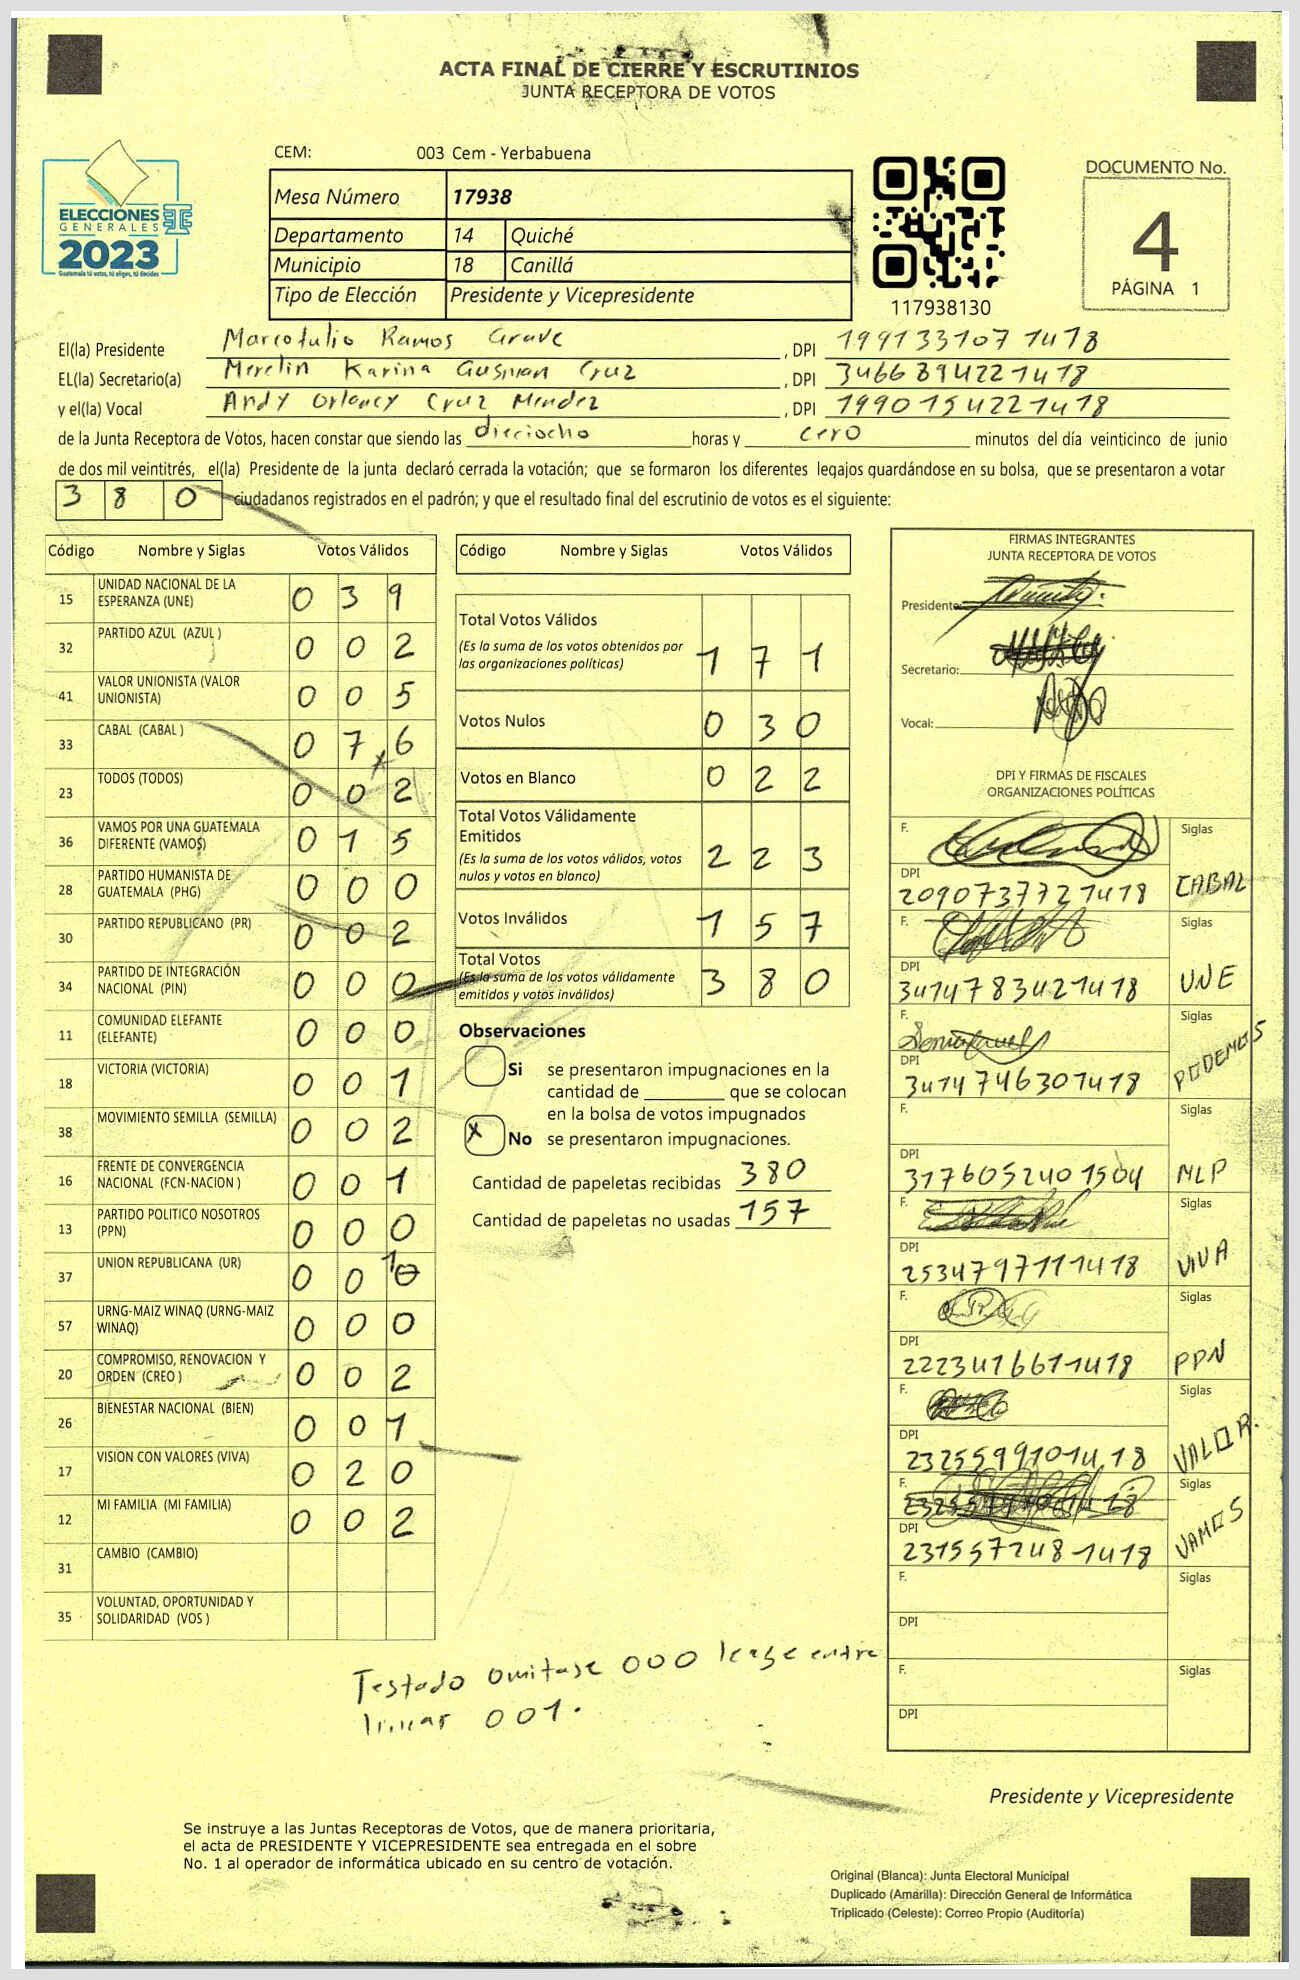 ACTA FINAL DE CIERRE Y ESCRUTINIOS
JUNTA RECEPTORA DE VOTOS
ELECCIONES
GENERALES
2023
Guatemala tú votas, tú eliges, tú decides
CEM: 003 Cem - Yerbabuena
Mesa Número 17938
Departamento 14 Quiché
Municipio 18 Canillá
Tipo de Elección Presidente y Vicepresidente
117938130
DOCUMENTO No.
4
PÁGINA 1
El(la) Presidente Marcotulio Ramos Grave, DPI 1991331071418
EL(la) Secretario(a) Merelin Karina Gusman Cruz, DPI 3466894221418
y el(la) Vocal Andy Orlancy Cruz Mendez, DPI 1990154221418
de la Junta Receptora de Votos, hacen constar que siendo las dieciocho horas y cero minutos del día veinticinco de junio
de dos mil veintitrés, el(la) Presidente de la junta declaró cerrada la votación; que se formaron los diferentes legajos guardándose en su bolsa, que se presentaron a votar
380 ciudadanos registrados en el padrón; y que el resultado final del escrutinio de votos es el siguiente:
Código Nombre y Siglas Votos Válidos
15 UNIDAD NACIONAL DE LA ESPERANZA (UNE) 0 3 9
32 PARTIDO AZUL (AZUL ) 0 0 2
41 VALOR UNIONISTA (VALOR UNIONISTA) 0 0 5
33 CABAL (CABAL ) 0 7 6
23 TODOS (TODOS) 0 0 2
36 VAMOS POR UNA GUATEMALA DIFERENTE (VAMOS) 0 1 5
28 PARTIDO HUMANISTA DE GUATEMALA (PHG) 0 0 0
30 PARTIDO REPUBLICANO (PR) 0 0 2
34 PARTIDO DE INTEGRACIÓN NACIONAL (PIN) 0 0 0
11 COMUNIDAD ELEFANTE (ELEFANTE) 0 0 0
18 VICTORIA (VICTORIA) 0 0 1
38 MOVIMIENTO SEMILLA (SEMILLA) 0 0 2
16 FRENTE DE CONVERGENCIA NACIONAL (FCN-NACION ) 0 0 1
13 PARTIDO POLITICO NOSOTROS (PPN) 0 0 0
37 UNION REPUBLICANA (UR) 0 0 1 0
57 URNG-MAIZ WINAQ (URNG-MAIZ WINAQ) 0 0 0
20 COMPROMISO, RENOVACION Y ORDEN (CREO ) 0 0 2
26 BIENESTAR NACIONAL (BIEN) 0 0 1
17 VISION CON VALORES (VIVA) 0 2 0
12 MI FAMILIA (MI FAMILIA) 0 0 2
31 CAMBIO (CAMBIO)
35 VOLUNTAD, OPORTUNIDAD Y SOLIDARIDAD (VOS )
Código Nombre y Siglas Votos Válidos
Total Votos Válidos
(Es la suma de los votos obtenidos por
las organizaciones políticas) 1 7 1
Votos Nulos 0 3 0
Votos en Blanco 0 2 2
Total Votos Válidamente
Emitidos
(Es la suma de los votos válidos, votos
nulos y votos en blanco) 2 2 3
Votos Inválidos 1 5 7
Total Votos
(Es la suma de los votos válidamente
emitidos y votos inválidos) 3 8 0
Observaciones
Si se presentaron impugnaciones en la
cantidad de ________ que se colocan
en la bolsa de votos impugnados
X No se presentaron impugnaciones.
Cantidad de papeletas recibidas 380
Cantidad de papeletas no usadas 157
FIRMAS INTEGRANTES
JUNTA RECEPTORA DE VOTOS
Presidente:
Secretario:
Vocal:
DPI Y FIRMAS DE FISCALES
ORGANIZACIONES POLÍTICAS
F. Siglas
DPI 2090737721418 CABAL
F. Siglas
DPI 3414783421418 UNE
F. Siglas
DPI 3414746301418 PODEMOS
F. Siglas
DPI 3176052401504 MLP
F. Siglas
DPI 2534797111418 VIVA
F. Siglas
DPI 2223416611418 PPN
F. Siglas
DPI 2325599101418 VALOR.
F. Siglas
DPI 2315572481418 VAMOS
F. Siglas
DPI
F. Siglas
DPI
Testado omitase 000 lease entre
linear 001.
Presidente y Vicepresidente
Se instruye a las Juntas Receptoras de Votos, que de manera prioritaria,
el acta de PRESIDENTE Y VICEPRESIDENTE sea entregada en el sobre
No. 1 al operador de informática ubicado en su centro de votación.
Original (Blanca): Junta Electoral Municipal
Duplicado (Amarilla): Dirección General de Informática
Triplicado (Celeste): Correo Propio (Auditoría)